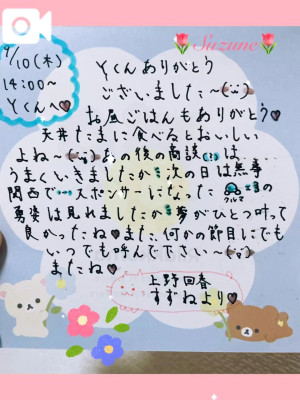 🌷Suzune🌷
9/10(木)
14:00〜
Yくんへ♥
Yくんありがとう
ございました〜
お昼ごはんもありがとう♥
天丼たまに食べるとおいしい
よね〜あの後の商談(!?)は…
うまくいきましたか…次の日は無事
関西で…スポンサーになった
クルマ
の
勇姿は見れましたか…夢がひとつ叶って
良かったね♥また何かの節目にでも
いつでも呼んで下さい〜
またね♥
上野回春
すずねより♥